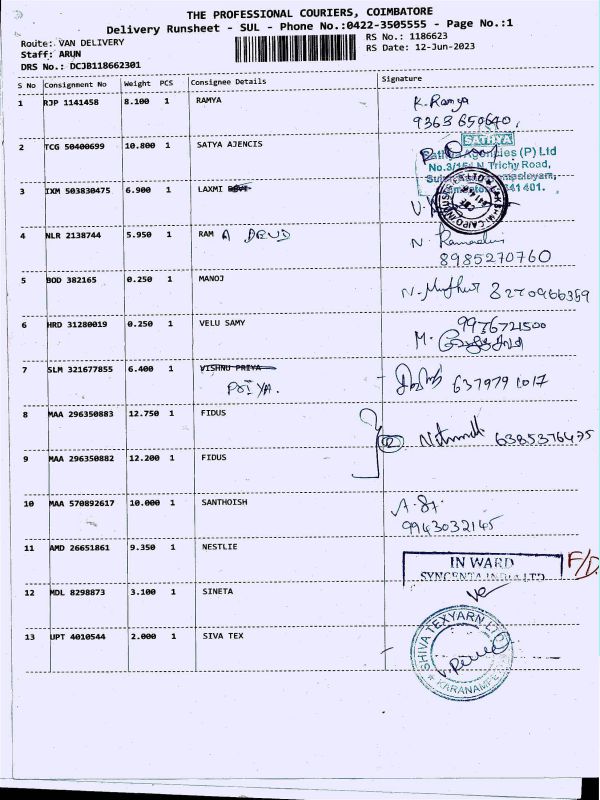 THE PROFESSIONAL COURIERS, COIMBATORE
Delivery Runsheet - SUL - Phone No.:0422-3505555 - Page No.:1
Route: VAN DELIVERY
Staff: ARUN
DRS No.: DCJB118662301
RS No.: 1186623
RS Date: 12-Jun-2023
S No Consignment No Weight PCS Consignee Details Signature
1 RJP 1141458 8.100 1 RAMYA K. Ramya
9363650640
2 TCG 50400699 10.800 1 SATYA AJENCIS
SATHYA
Sathya Agencies (P) Ltd
Trichy Road,
641 401.
3 IXM 503830475 6.900 1 LAXMI
4 NLR 2138744 5.950 1 RAM A N.
8985270760
5 BOD 382165 0.250 1 MANOJ N. 8270966359
6 HRD 31280019 0.250 1 VELU SAMY 9976721500
M.
7 SLM 321677855 6.400 1 VISHNU PRIYA
PRIYA. 6379791017
8 MAA 296350883 12.750 1 FIDUS 6385376435
9 MAA 296350882 12.200 1 FIDUS
10 MAA 570892617 10.000 1 SANTHOISH A.
9943032145
11 AMD 26651861 9.350 1 NESTLIE
IN WARD
F/D
12 MDL 8298873 3.100 1 SINETA
13 UPT 4010544 2.000 1 SIVA TEX
SHIVA TEXYARN LTD